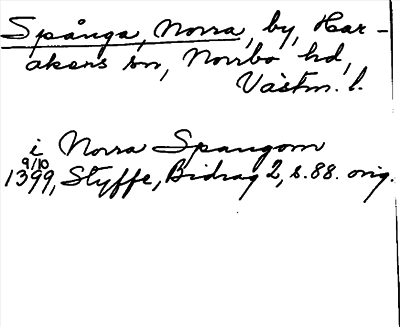 Spånga, Norra, by, Har-
akers sn, Norrbo hd,
Västm. l.
i Norra Spangom
9/10
1399, Styffe, Bidrag 2, s. 88. orig.